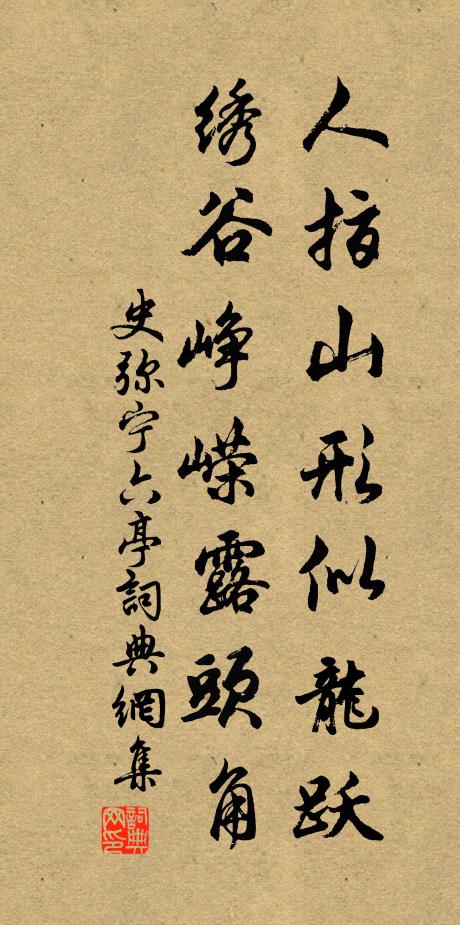 人指山形似龍跃
绣谷峥嵘露頭角
史弥宁六亭詞典網集
詞典网印